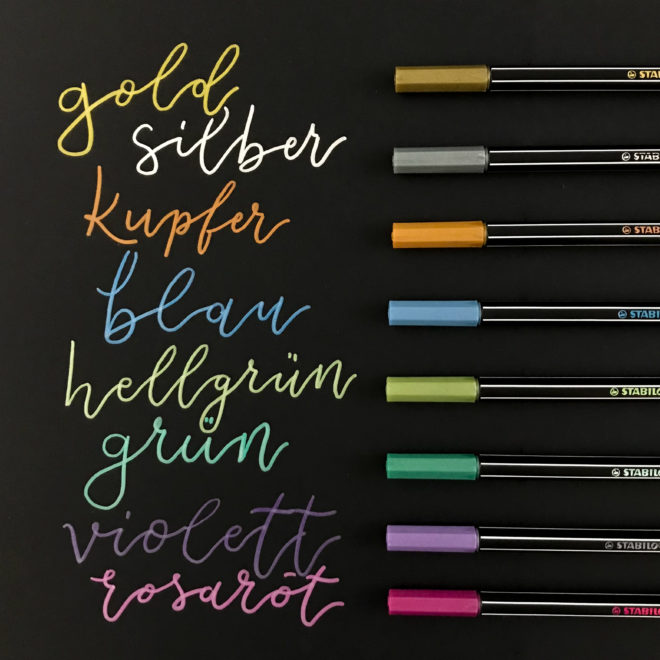 gold
STAB
silber
STAB
kupfer
STAB
blau
STABILO
hellgrün
STABILO
grün
STABILO
violett
STABILO
rosarot
STABILO